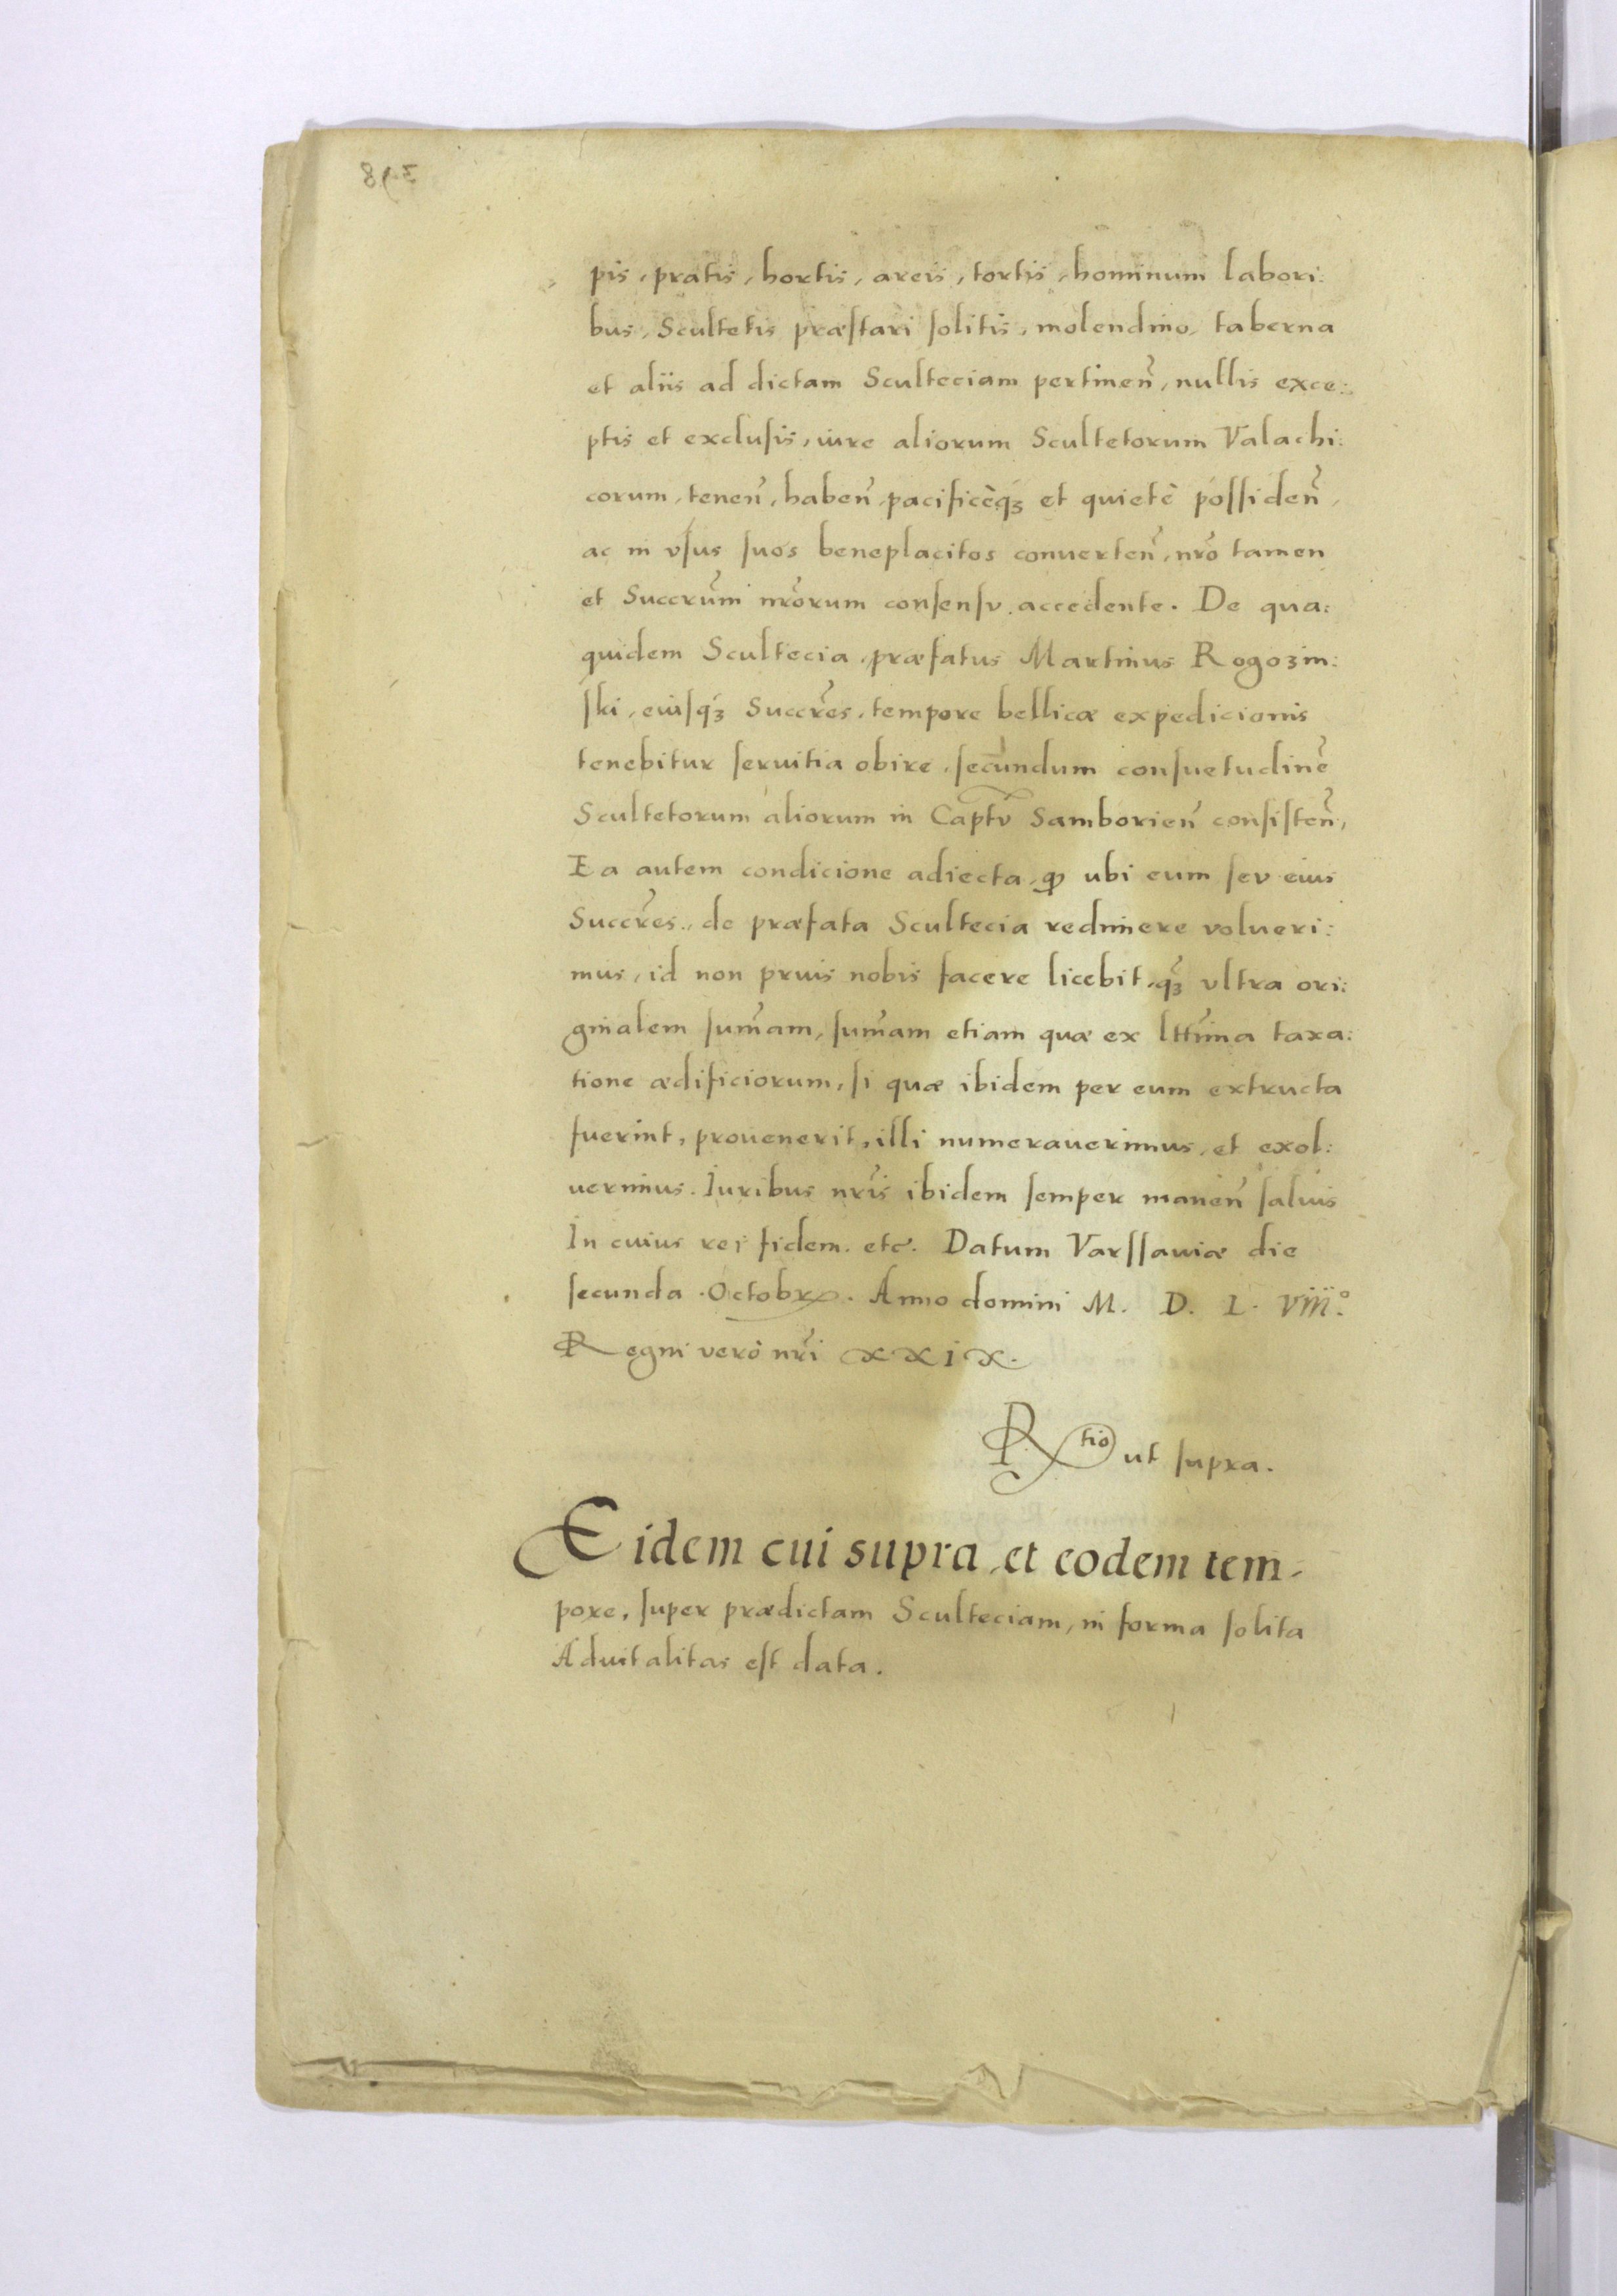 pis, pratis, hortis, areis, tortis, hominum labori:
bus, Scultetis præstari solitis, molendino, taberna
et aliis ad dictam Sculteciam pertinen̄, nullis exce:
ptis et exclusis, iure aliorum Scultetorum Valachi:
corum, tenen̄, haben̄, pacificèqꝫ et quietè possiden̄,
ac in vsus suos beneplacitos conuerten̄, nr̄o tamen
et Succr̄um nr̄orum consensv accedente. De qua:
quidem Scultecia, præfatus Martinus Rogozin:
ski, eiusqꝫ Succr̄es, tempore bellicæ expedicionis
tenebitur seruitia obire, secundum consuetudinē
Scultetorum aliorum in Captv̄ Samborien̄ consisten̄,
Ea autem condicione adiecta, ꝙ ubi eum sev eius
Succr̄es, de præfata Scultecia redimere volueri:
mus, id non prius nobis facere licebit, qꝫ̄ vltra ori:
ginalem sum̄am, sum̄am etiam quæ ex ltt̄ima taxa:
tione ædificiorum, si quæ ibidem per eum extructa
fuerint, prouenerit, illi numerauerimus, et exol:
uerimus. Iuribus nr̄is ibidem semper manen̄ saluis
In cuius rei fidem. etc. Datum Varssauiæ die
secunda .Octobrꝭ. Anno domini M. D. L. Viii.º
Regni verò nr̄i XXIX.
R tio ut supra.
Eidem cui supra, et eodem tem-
pore, super prædictam Sculteciam, in forma solita
Aduitalitas est data.